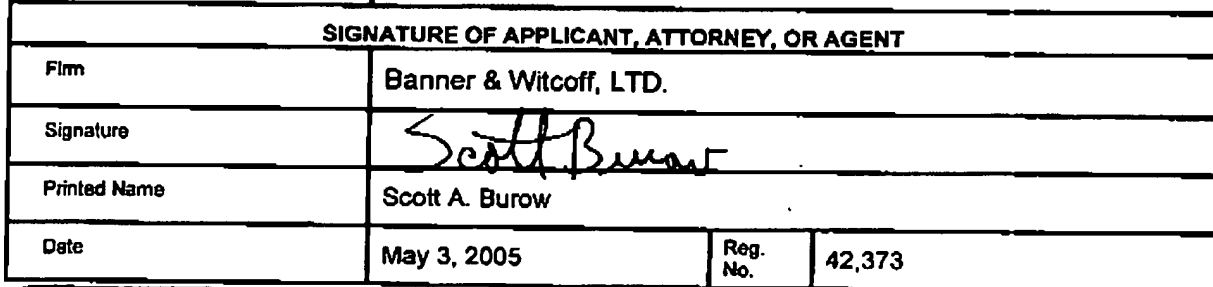 SIGNATURE OF APPLICANT, ATTORNEY, OR AGENT
Firm Banner & Witcoff, LTD.
Signature Scott Burow
Printed Name Scott A. Burow
Date May 3, 2005 Reg. No. 42,373